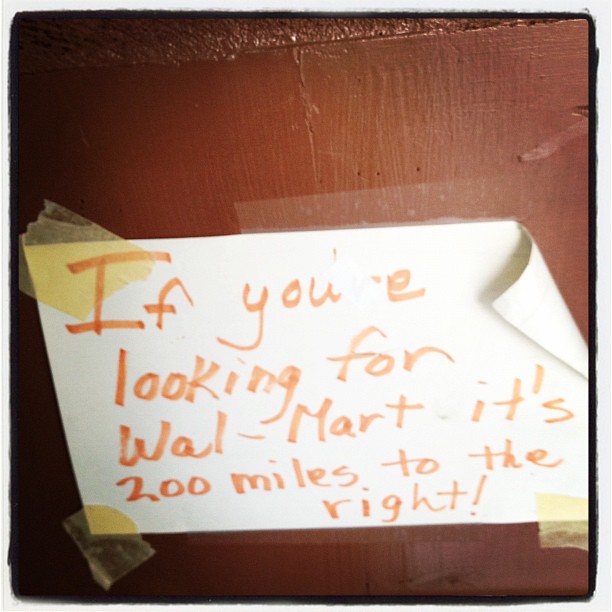 If you're
looking for
Wal-Mart it's
200 miles to the
right!